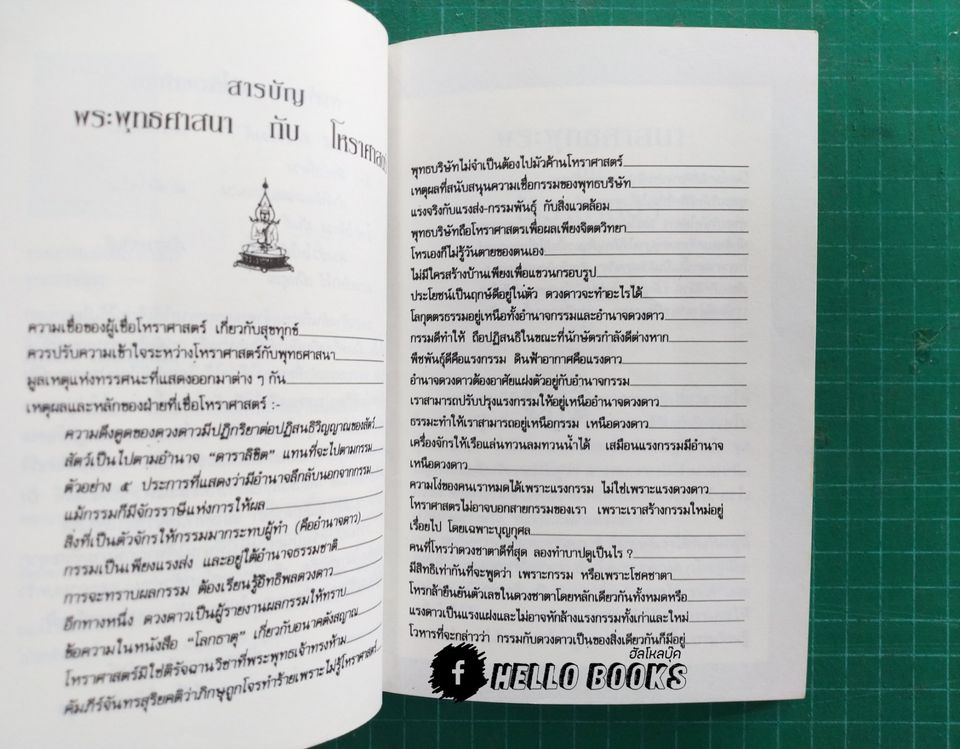 สารบัญ
พระพุทธศาสนา กับ โหราศาสตร์
ความเชื่อของผู้เชื่อโหราศาสตร์ เกี่ยวกับสุขทุกข์
ควรปรับความเข้าใจระหว่างโหราศาสตร์กับพุทธศาสนา
มูลเหตุแห่งทรรศนะที่แสดงออกมาต่าง ๆ กัน
เหตุผลและหลักของฝ่ายที่เชื่อโหราศาสตร์ :-
ความดึงดูดของดวงดาวมีปฏิกริยาต่อปฏิสนธิวิญญาณของสัตว์
สัตว์เป็นไปตามอำนาจ “ดาราลิขิต” แทนที่จะไปตามกรรม
ตัวอย่าง ๕ ประการที่แสดงว่ามีอำนาจลึกลับนอกจากกรรม
แม้กรรมก็มีจักรราษีแห่งการให้ผล
สิ่งที่เป็นตัวจักรให้กรรมมากระทบผู้ทำ (คืออำนาจดาว)
กรรมเป็นเพียงแรงส่ง และอยู่ใต้อำนาจธรรมชาติ
การจะทราบผลกรรม ต้องเรียนรู้อิทธิพลดวงดาว
อีกทางหนึ่ง ดวงดาวเป็นผู้รายงานผลกรรมให้ทราบ
ข้อความในหนังสือ “โลกธาตุ” เกี่ยวกับอนาคตังสญาณ
โหราศาสตร์มิใช่ดิรัจฉานวิชาที่พระพุทธเจ้าทรงห้าม
คัมภีร์จันทรสุริยคติว่าภิกษุถูกโจรทำร้ายเพราะไม่รู้โหราศาสตร์
พุทธบริษัทไม่จำเป็นต้องไปมัวค้านโหราศาสตร์
เหตุผลที่สนับสนุนความเชื่อกรรมของพุทธบริษัท
แรงจริงกับแรงส่ง-กรรมพันธุ์ กับสิ่งแวดล้อม
พุทธบริษัทถือโหราศาสตร์เพื่อผลเพียงจิตตวิทยา
โหรเองก็ไม่รู้วันตายของตนเอง
ไม่มีใครสร้างบ้านเพียงเพื่อแขวนกรอบรูป
ประโยชน์เป็นฤกษ์ดีอยู่ในตัว ดวงดาวจะทำอะไรได้
โลกุตตรธรรมอยู่เหนือทั้งอำนาจกรรมและอำนาจดวงดาว
กรรมดีทำให้ ถือปฏิสนธิในขณะที่นักษัตรกำลังดีต่างหาก
พืชพันธุ์ดีคือแรงกรรม ดินฟ้าอากาศคือแรงดาว
อำนาจดวงดาวต้องอาศัยแฝงตัวอยู่กับอำนาจกรรม
เราสามารถปรับปรุงแรงกรรมให้อยู่เหนืออำนาจดวงดาว
ธรรมะทำให้เราสามารถอยู่เหนือกรรม เหนือดวงดาว
เครื่องจักรให้เรือแล่นทวนลมทวนน้ำได้ เสมือนแรงกรรมมีอำนาจ
เหนือดวงดาว
ความโง่ของคนเราหมดได้เพราะแรงกรรม ไม่ใช่เพราะแรงดวงดาว
โหราศาสตร์ไม่อาจบอกสายกรรมของเรา เพราะเราสร้างกรรมใหม่อยู่
เรื่อยไป โดยเฉพาะบุญกุศล
คนที่โหรว่าดวงชาตาดีที่สุด ลองทำบาปดูเป็นไร ?
มีสิทธิเท่ากันที่จะพูดว่า เพราะกรรม หรือเพราะโชคชาตา
โหรกล้ายืนยันตัวเลขในดวงชาตาโดยหลักเดียวกันทั้งหมดหรือ
แรงดาวเป็นแรงแฝงและไม่อาจหักล้างแรงกรรมทั้งเก่าและใหม่
โวหารที่จะกล่าวว่า กรรมกับดวงดาวเป็นของสิ่งเดียวกันก็มีอยู่
ฮัลโหลบุ๊ค
f HELLO BOOKS